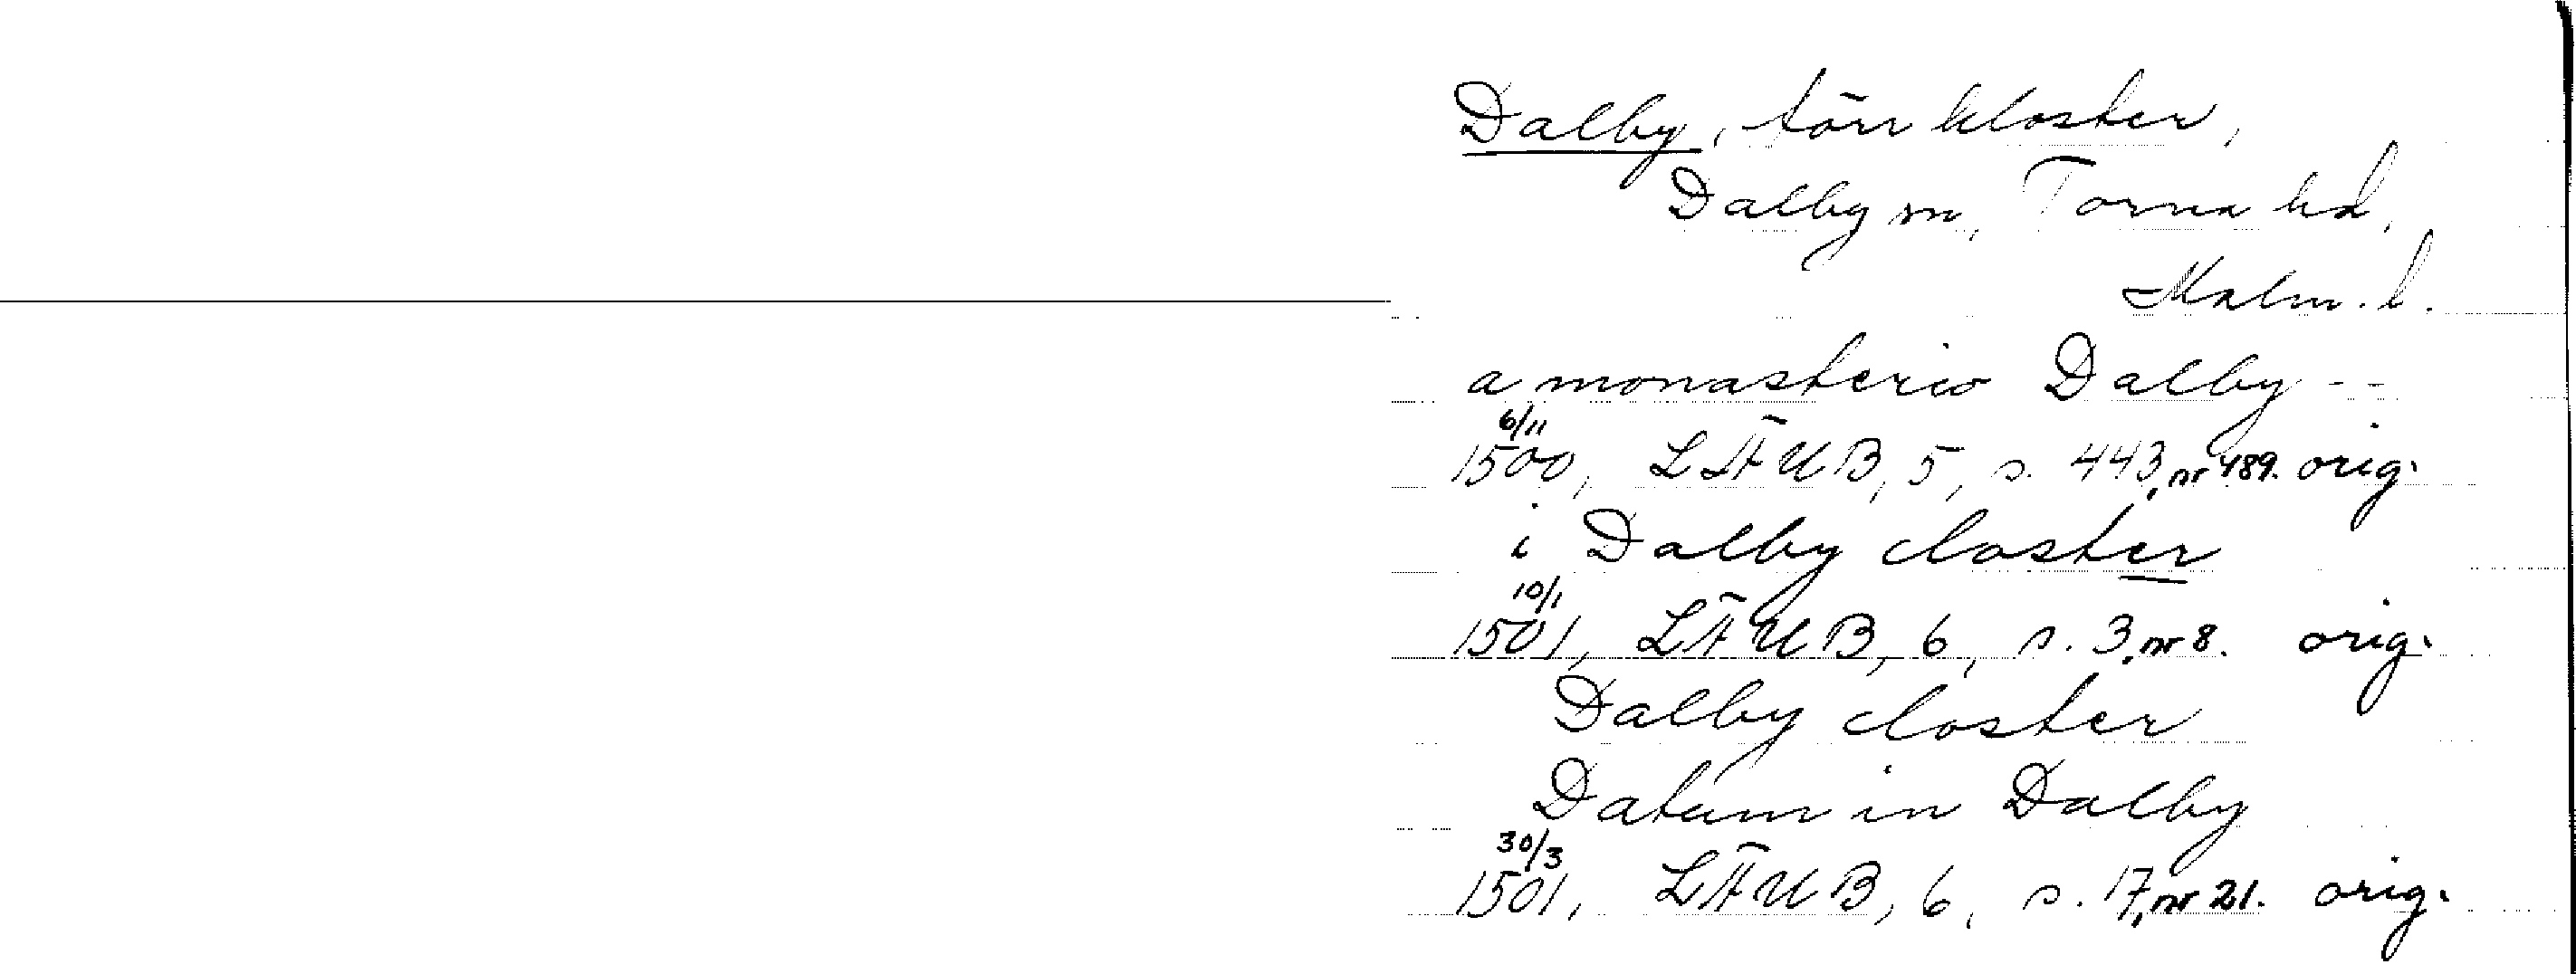 Dalby, förr kloster,
Dalby sn, Torna hd,
Malm. l.
a monasterio Dalby --
6/11
1500, LÄUB, 5, s. 443, nr 489. orig.
i Dalby closter
10/1
1501, LÄUB, 6, s. 3, nr 8. orig.
Dalby closter
Datum in Dalby
30/3
1501, LÄUB, 6, s. 17, nr 21. orig.